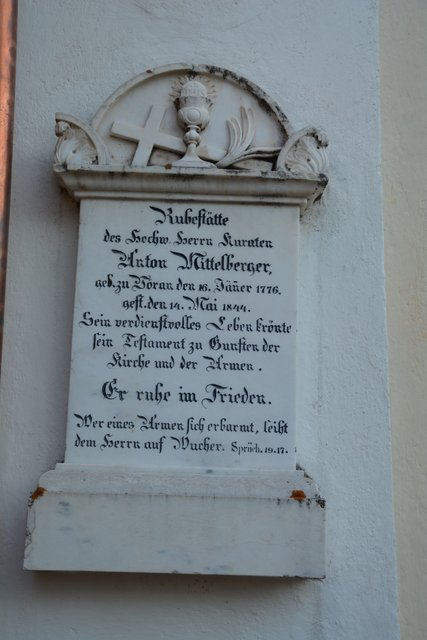 Ruhestätte
des Hochw. Herrn Kuraten
Anton Mittelberger,
geb. zu Vöran den 16. Jäner 1776.
gest. den 14. Mai 1844.
Sein verdienstvolles Leben krönte
sein Testament zu Gunsten der
Kirche und der Armen.
Er ruhe im Frieden.
Wer eines Armen sich erbarmt, leiht
dem Herrn auf Wucher. Sprüch. 19. 17.